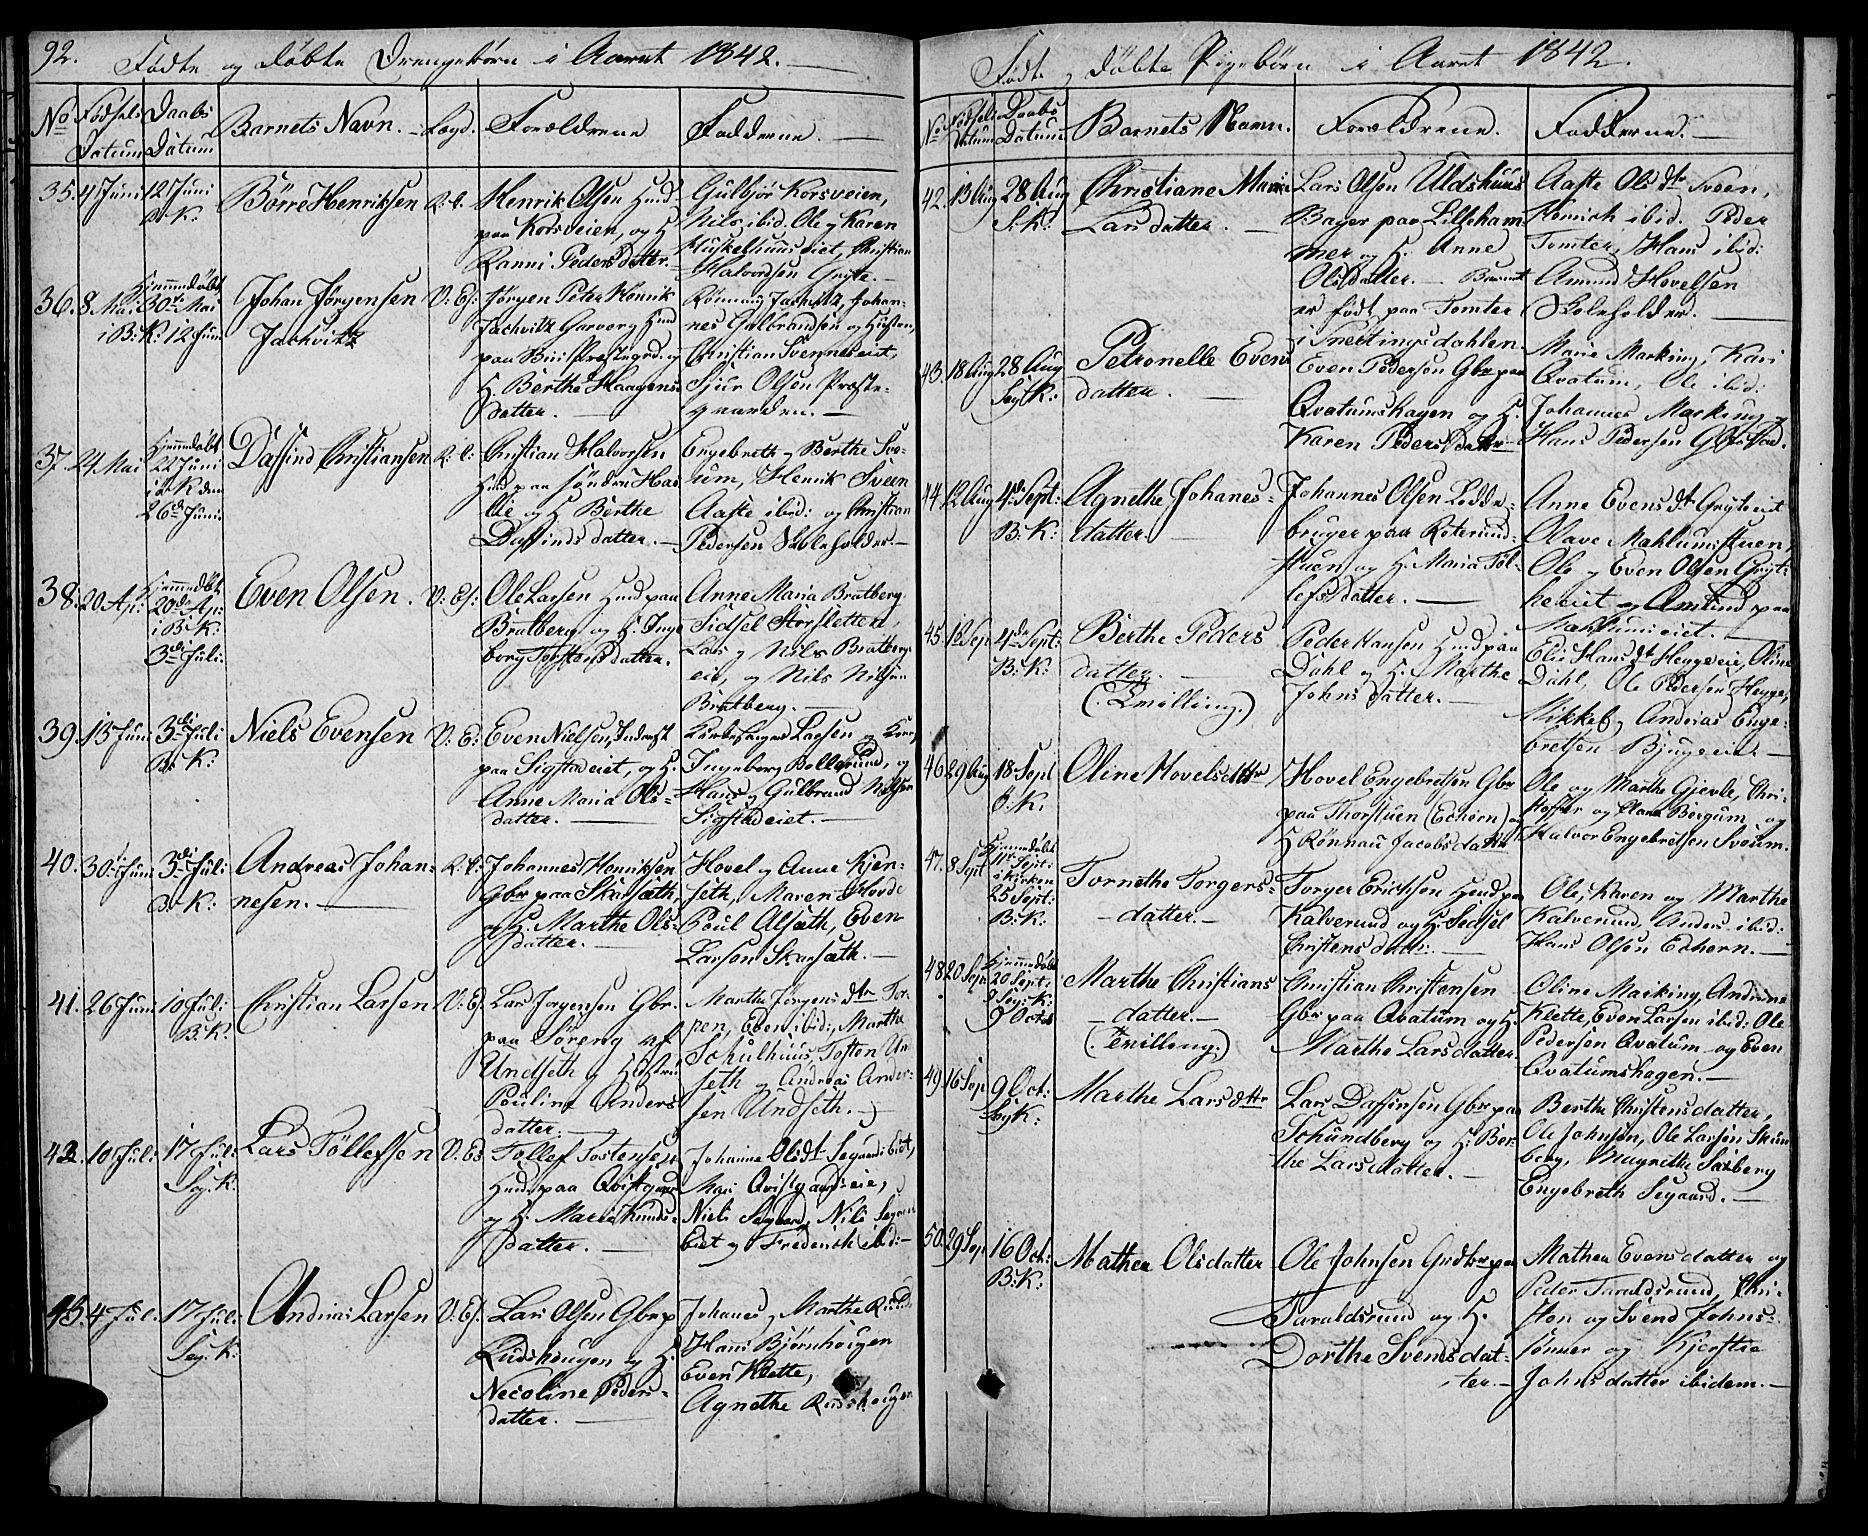 92. Fødte og døbte Drengebørn i Aaret 1842.
No Fødsels Datum Daabs Datum Barnets Navn. Lægd. Forældrene Fadderne.
35. 4 Juni 12 Juni B.K. Börre Henriksen
Henrik Olsen Huusd
paa Korsveien, og H.
Ranni Pedersdatter.
Gulbjør Korsveien,
Nils ibid. Ole og Karen
Huskelhuus eiet, Christian
Halvordsen Gryte.
36. 8 Mai Hjemmedöbt 30te Mai i B:K: 12 Juni
Johan Jørgensen V: Es:
Jachvitz
Jørgen Peter Henrik
Jachvitz Garver og Huusd
paa Prestegrd. og
H. Berthe Haagens-
datter.
Rønnaug Jachvitz, Johan-
nes Gulbrandsen og
Christian Svenneseiet,
Siur Olsen Præste-
gaarden.
37. 24 Mai Hjemmedöbt 2d Juni i B:K den 26de Juni
Daffind Christiansen
Christian Halvorsen
Huusd paa söndre
lie og H Berthe
Daffindsdatter.
Engebreth og Berthe Svo-
um, Henrik Sveen
Aaste ibid: og Christian
Pedersen Skoleholder.
38. 20 Ap: Hjemmedöbt 20de Ap: i B:K: 3die Juli:
Even Olsen. V: Es:
Ole Larsen Huusd paa
Bratberg og H. Inge
borg Torstensdatter.
Anne Maria Bratberg
Sidsel Storsletten,
Lars og Nils Bratberg
eie, og Nils Nilsen
Bratberg.
39. 13 Juni 3die Juli B:K:
Niels Evensen V: Es:
Even Nielsen, Inderst
paa Sigstadeiet, og H.
Anne Maria Ols-
datter.
Kirkesanger Larsen og Kone,
Ingeborg Bollerund, og
Hans og Gulbrand Nielsen
Sigstadeiet.
40. 30 Juni 3die Juli: B:K:
Andreas Johan-
nesen.
Johannes Henriksen
Gbr paa Skarsæth,
og H. Marthe Ols-
datter.
Hovel og Anne Kjen-
seth, Maren Hovde
Poul Alsæth, Even
Larsen Skarsæth.
41. 26 Juni 10 Jul: B:K:
Christian Larsen V: Es.
Lars Jørgensen Gbr.
paa Søreng af
Undseth og Hustru
Pauline Anders
datter.
Marthe Jörgensdtr Tor-
pen, Even ibid:, Marthe
Schulhuus, Tosten Un-
seth og Andreas Ander-
sen Undseth.
42. 10 Jul: 17 Jul: Seg:K:
Lars Töllefsen V: Es
Tollef Tostensen
Huusd paa Qvistgaar
og H. Marie Knuds-
datter.
Johanne Olsdt Segaards Eiet,
Mari Qvistgaardseie,
Niels Segaard, Nils Segaar
eiet og Frederich ibid:
43. 4 Jul. 17 Jul: Seg:K:
Andreas Larsen V: Es.
Lars Olsen Gbr p
Rudshougen og H.
Nicoline Peders-
datter.
Johanes og Marthe Ruud,
Hans Bjørnhougen
Even Klette,
Agnethe Rudshougen
Fødte og döbte Pigebörn i Aaret 1842.
No. Fødsels Datum Daabs Datum Barnets Navn. Forældrene. Fadderne.
42. 13 Aug 28 Aug S:K:
Christiane Marie
Larsdatter.
Lars Olsen Uldshuus
Bager paa Lilleham
mer og H. Anne
Olsdatter. Barnet
er født paa Tomter
i Snertingsdahlen.
Aaste Olsdtr Sveen,
Henrich ibid. Peder
Tomter, Hans ibid:
Amund Hovelsen
Skoleholder.
43. 18 Aug 28 Aug Seg K:
Petronelle Evens
datter.
Even Pedersen Gbr paa
Qvatumshagen og H.
Karen Pedersdatter
Marie Marking, Kari
Qvatum, Ole ibid:
Johannes Marking og
Hans Pedersen
44. 12 Aug 4de Sept: B:K:
Agnethe Johanes-
datter.
Johannes Olsen Lodde-
bruger paa Roterud-
stuen, og H. Maria Töl-
lefsdatter.
Anne Evensdt Gryteeiet
Olave Mæhlumstuen,
Ole og Even Olsen Gryt-
heeiet og Amund paa
Mæhlumseiet.
45. 1 Sep 4de Sept: B:K:
Berthe Peders
datter.
(Tvilling.)
Peder Hansen Huusd paa
Dahl og H. Marthe
Johnsdatter.
Elie Hansdt Heggeeie, Oline
Dahl, Ole Pedersen Hegge,
Mikkel og Andreas Enge-
bretsen Bjugeeiet
46. 29 Aug 18 Sept S.K.
Oline Hovelsdttr
Hovel Engebretsen Gbr
paa Thorstuen (Echern) og
H Rønnau Jacobsdattr
Ole og Marthe Gjerle, Chri-
stoffer og Maria Bergum og
Halvor Engebretsen Svoum.
47. 8 Sept Hjemmedöbt 11te Sept: i Kirken 25 Sept: B:K:
Tornethe Torgers-
datter.
Torger Erichsen Huusd paa
Kalverud og H. Sidsel
Christensdatt:
Ole, Karen og Marthe
Kalverud, Anders ibid:
Hans Olsen Echern.
48. 20 Sept Hjemmedöbt 20 Sept: i Seg:K: 9 Octbr
Marthe Christians
datter.
(Tvilling.)
Christian Christensen
Gbr paa Qvatum og H.
Marthe Larsdatter.
Oline Marking, Andrine
Klette, Even Larsen ibid: Ole
Pedersen Qvatum og Even
Qvatumshagen.
49. 16 Sep 9 Oct: Seg K:
Marthe Larsdttr
Lars Daffinsen Gbr paa
Schundberg og H: Ber-
the Larsdatter.
Berthe Christensdatter,
Ole Johnsen, Ole Larsen Skun
berg, Magnethe Saxberg
Engebreth Segaard.
50. 29 Sep 16 Oct: B:K:
Mathea Olsdatter
Ole Johnsen Grdbr paa
Taraldsrund og H.
Dorthe Svendsdat-
ter.
Mathea Evensdatter og
Peder Taraldsrund, Chri-
sten og Svend Johns-
sønner og Kjerstie
Johnsdatter ibidem.